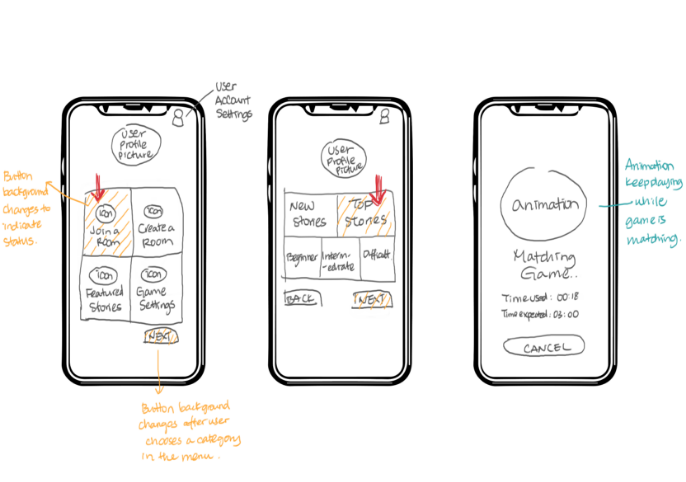 User
Account
Settings
User
Profile
Picture
Button
background
changes to
indicate
status.
icon
Join a
Room
icon
Create a
Room
icon
Featured
Stories
icon
Game
Settings
NEXT
Button background
changes after user
chooses a category
in the menu.
User
Profile
Picture
New
Stories
Top
Stories
Beginner
Interm-
ediate
Difficult
BACK
NEXT
animation
Matching
Game..
Time used: 00:18
Time expected: 03:00
CANCEL
Animation
keep playing
while
game is
matching.